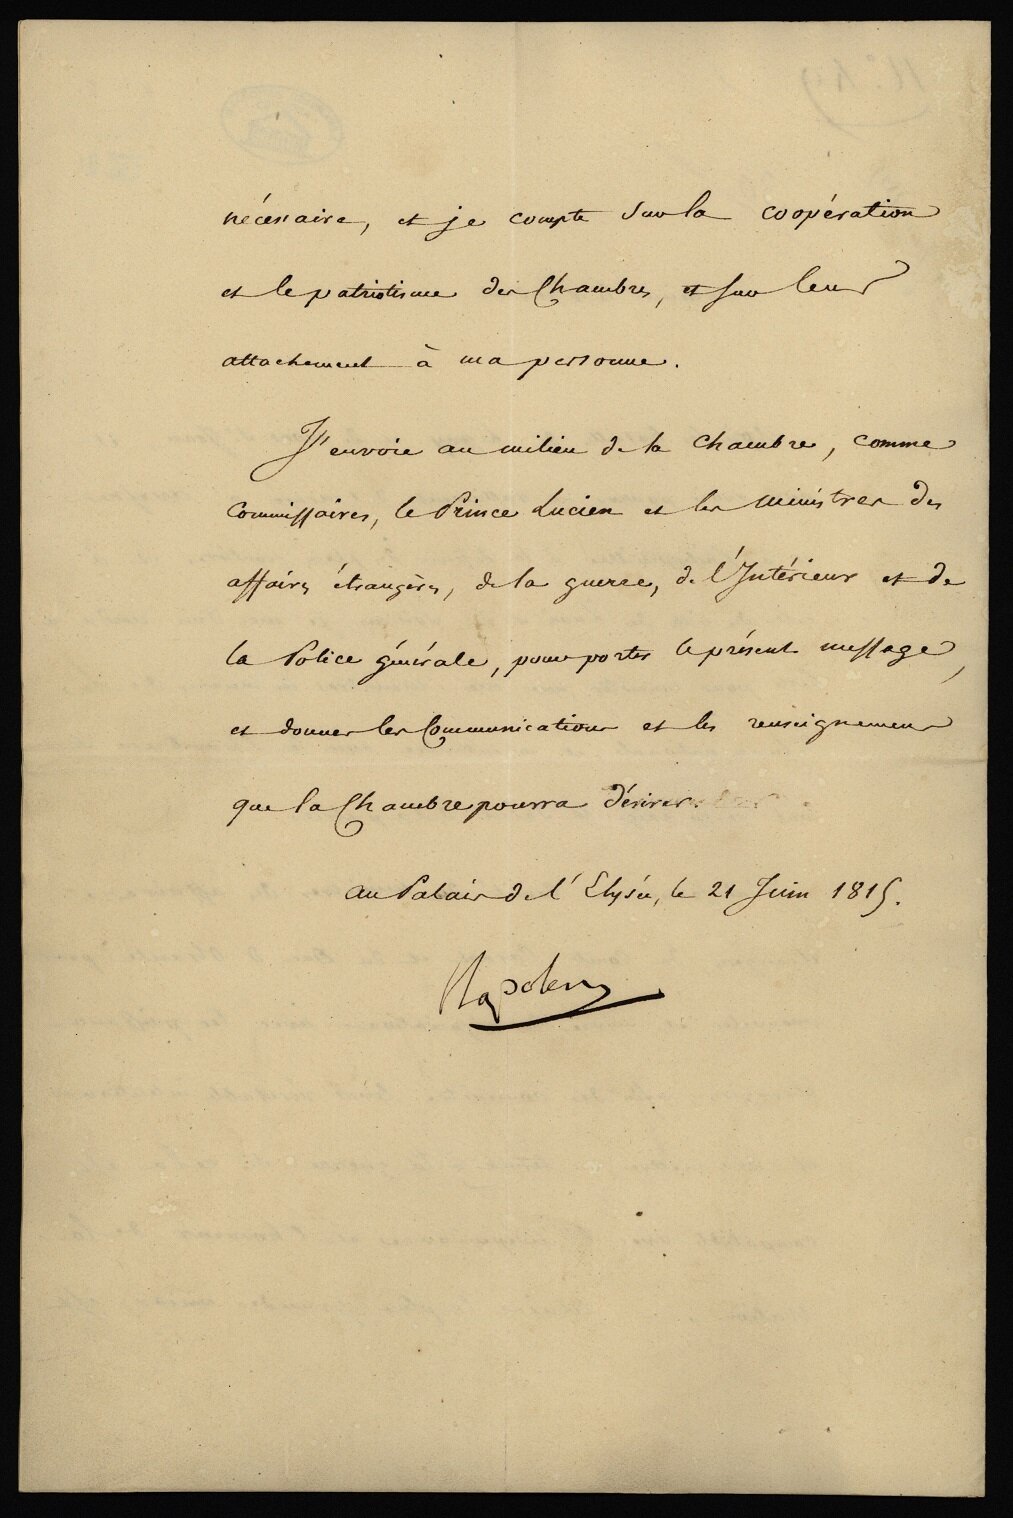 nécessaire, et je compte sur la coopération
et le patriotisme des Chambres, et sur leur
attachement à ma personne.
J'envoie au milieu de la Chambre, comme
Commissaires, le Prince Lucien et les Ministres des
affaires étrangères, de la guerre, de l'Intérieur et de
la Police générale, pour porter le présent message,
et donner les Communications et les renseignemens
que la Chambre pourra désirer.
au Palais de l'Elysée, le 21 Juin 1815.
Napoleon